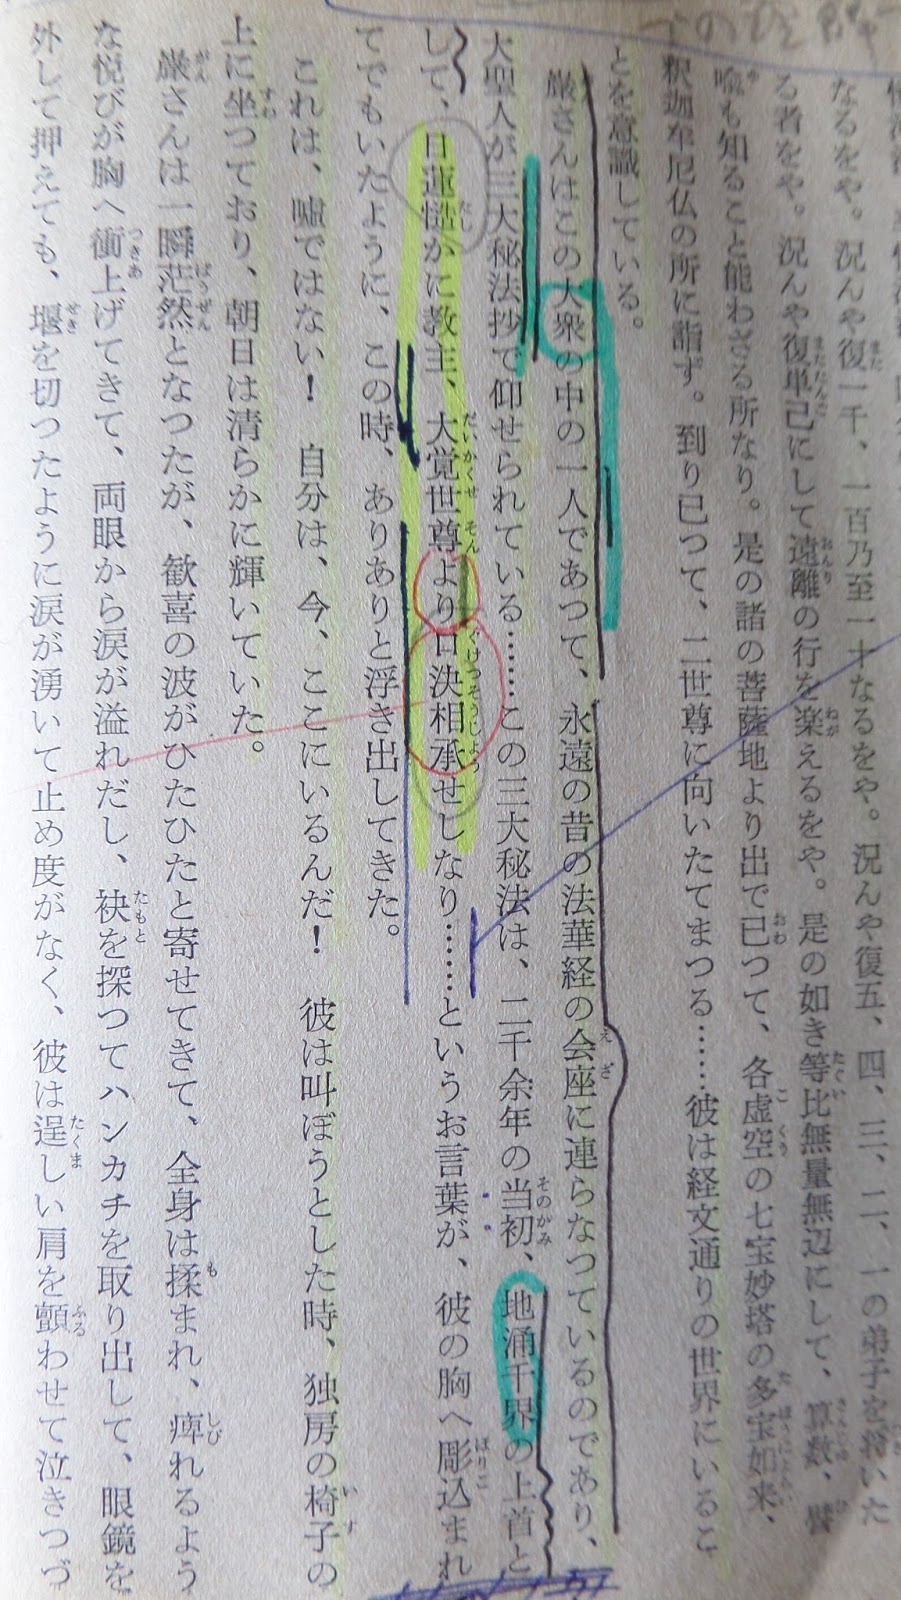 なるをや。況んや復一千、一百乃至一十なるをや。況んや復五、四、三、二、一の弟子を将いた
る者をや。況んや復単己にして遠離の行を楽えるをや。是の如き等比無量無辺にして、算数、譬
喩も知ること能わざる所なり。是の諸の菩薩地より出で已つて、各虚空の七宝妙塔の多宝如来、
釈迦牟尼仏の所に詣ず。到り已つて、二世尊に向いたてまつる……彼は経文通りの世界にいるこ
とを意識している。
厳さんはこの大衆の中の一人であつて、永遠の昔の法華経の会座に連らなつているのであり、
大聖人が三大秘法抄で仰せられている………この三大秘法は、二千余年の当初、地涌千界の上首と
して、日蓮慥かに教主、大覚世尊より口決相承せしなり……というお言葉が、彼の胸へ彫込まれ
てでもいたように、この時、ありありと浮き出してきた。
これは、嘘ではない！　自分は、今、ここにいるんだ！　彼は叫ぼうとした時、独房の椅子の
上に坐つており、朝日は清らかに輝いていた。
厳さんは一瞬茫然となつたが、歓喜の波がひたひたと寄せてきて、全身は揉まれ、痺れるよう
な悦びが胸へ衝上げてきて、両眼から涙が溢れだし、袂を探つてハンカチを取り出して、眼鏡を
外して押えても、堰を切つたように涙が湧いて止め度がなく、彼は逞しい肩を顫わせて泣きつづ